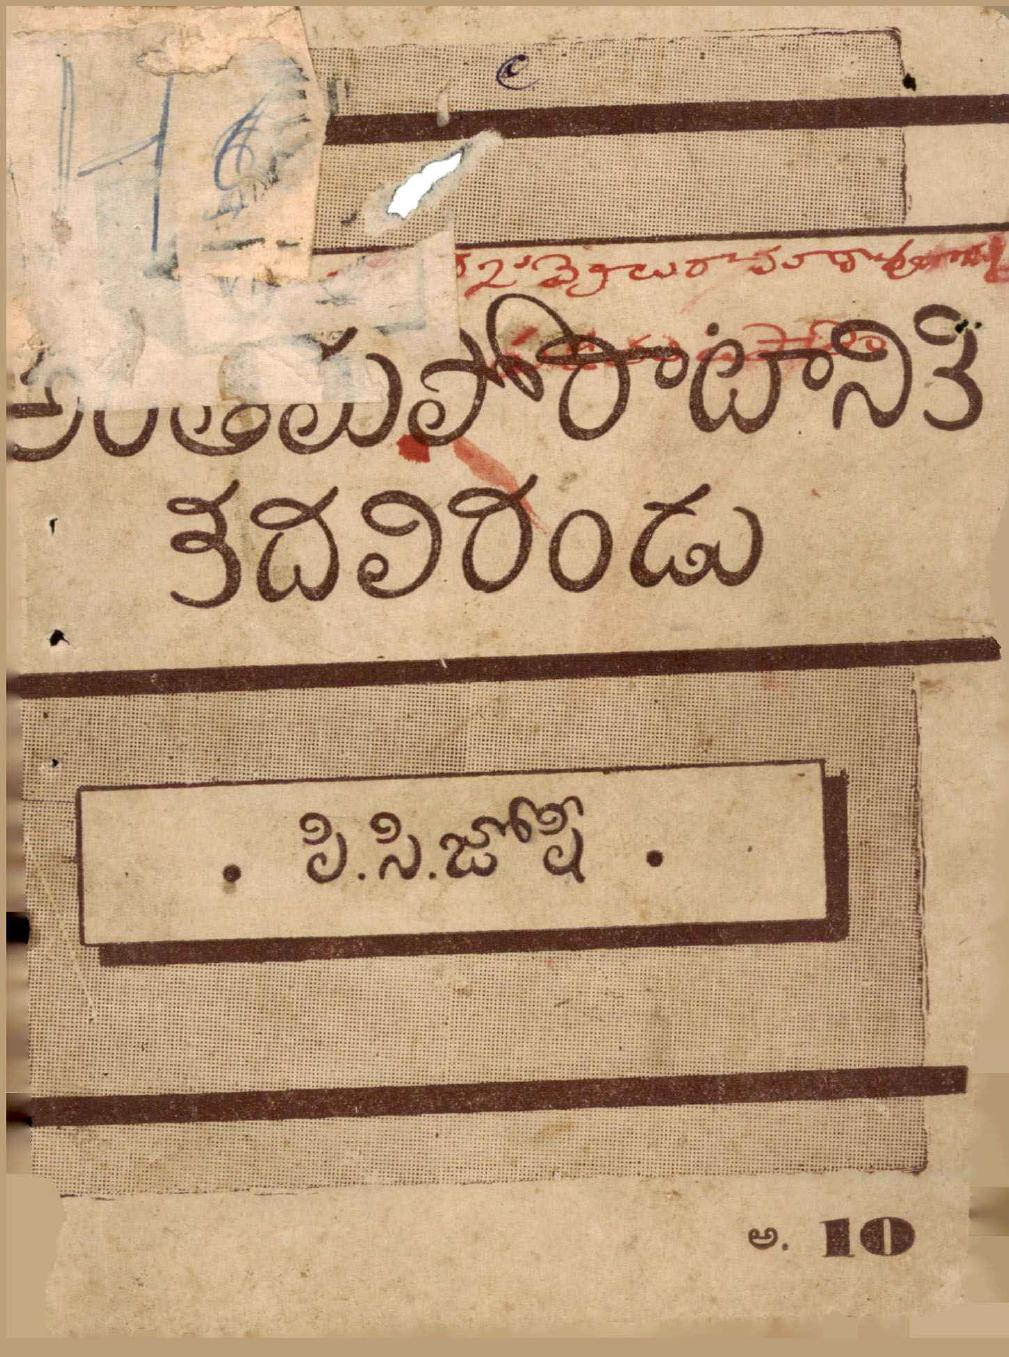 అంతిమపోరాటానికి
కదలిరండు
పి.సి.జోషి
అ. 10